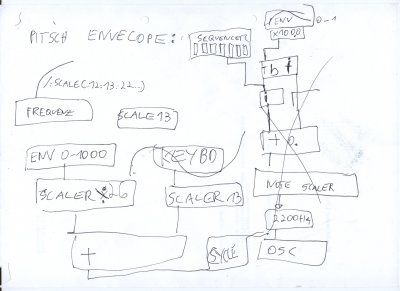 PITSCH ENVELOPE:
SEQUENCER
ENV 0-1
x1000
/:SCALE(12:13:22...)
tbf
FREQUENZ
SCALE 13
+0.
ENV 0-1000
KEYBD
NOTE SCALER
SCALER
SCALER 13
2200Hz
+
CYCLE
OSC